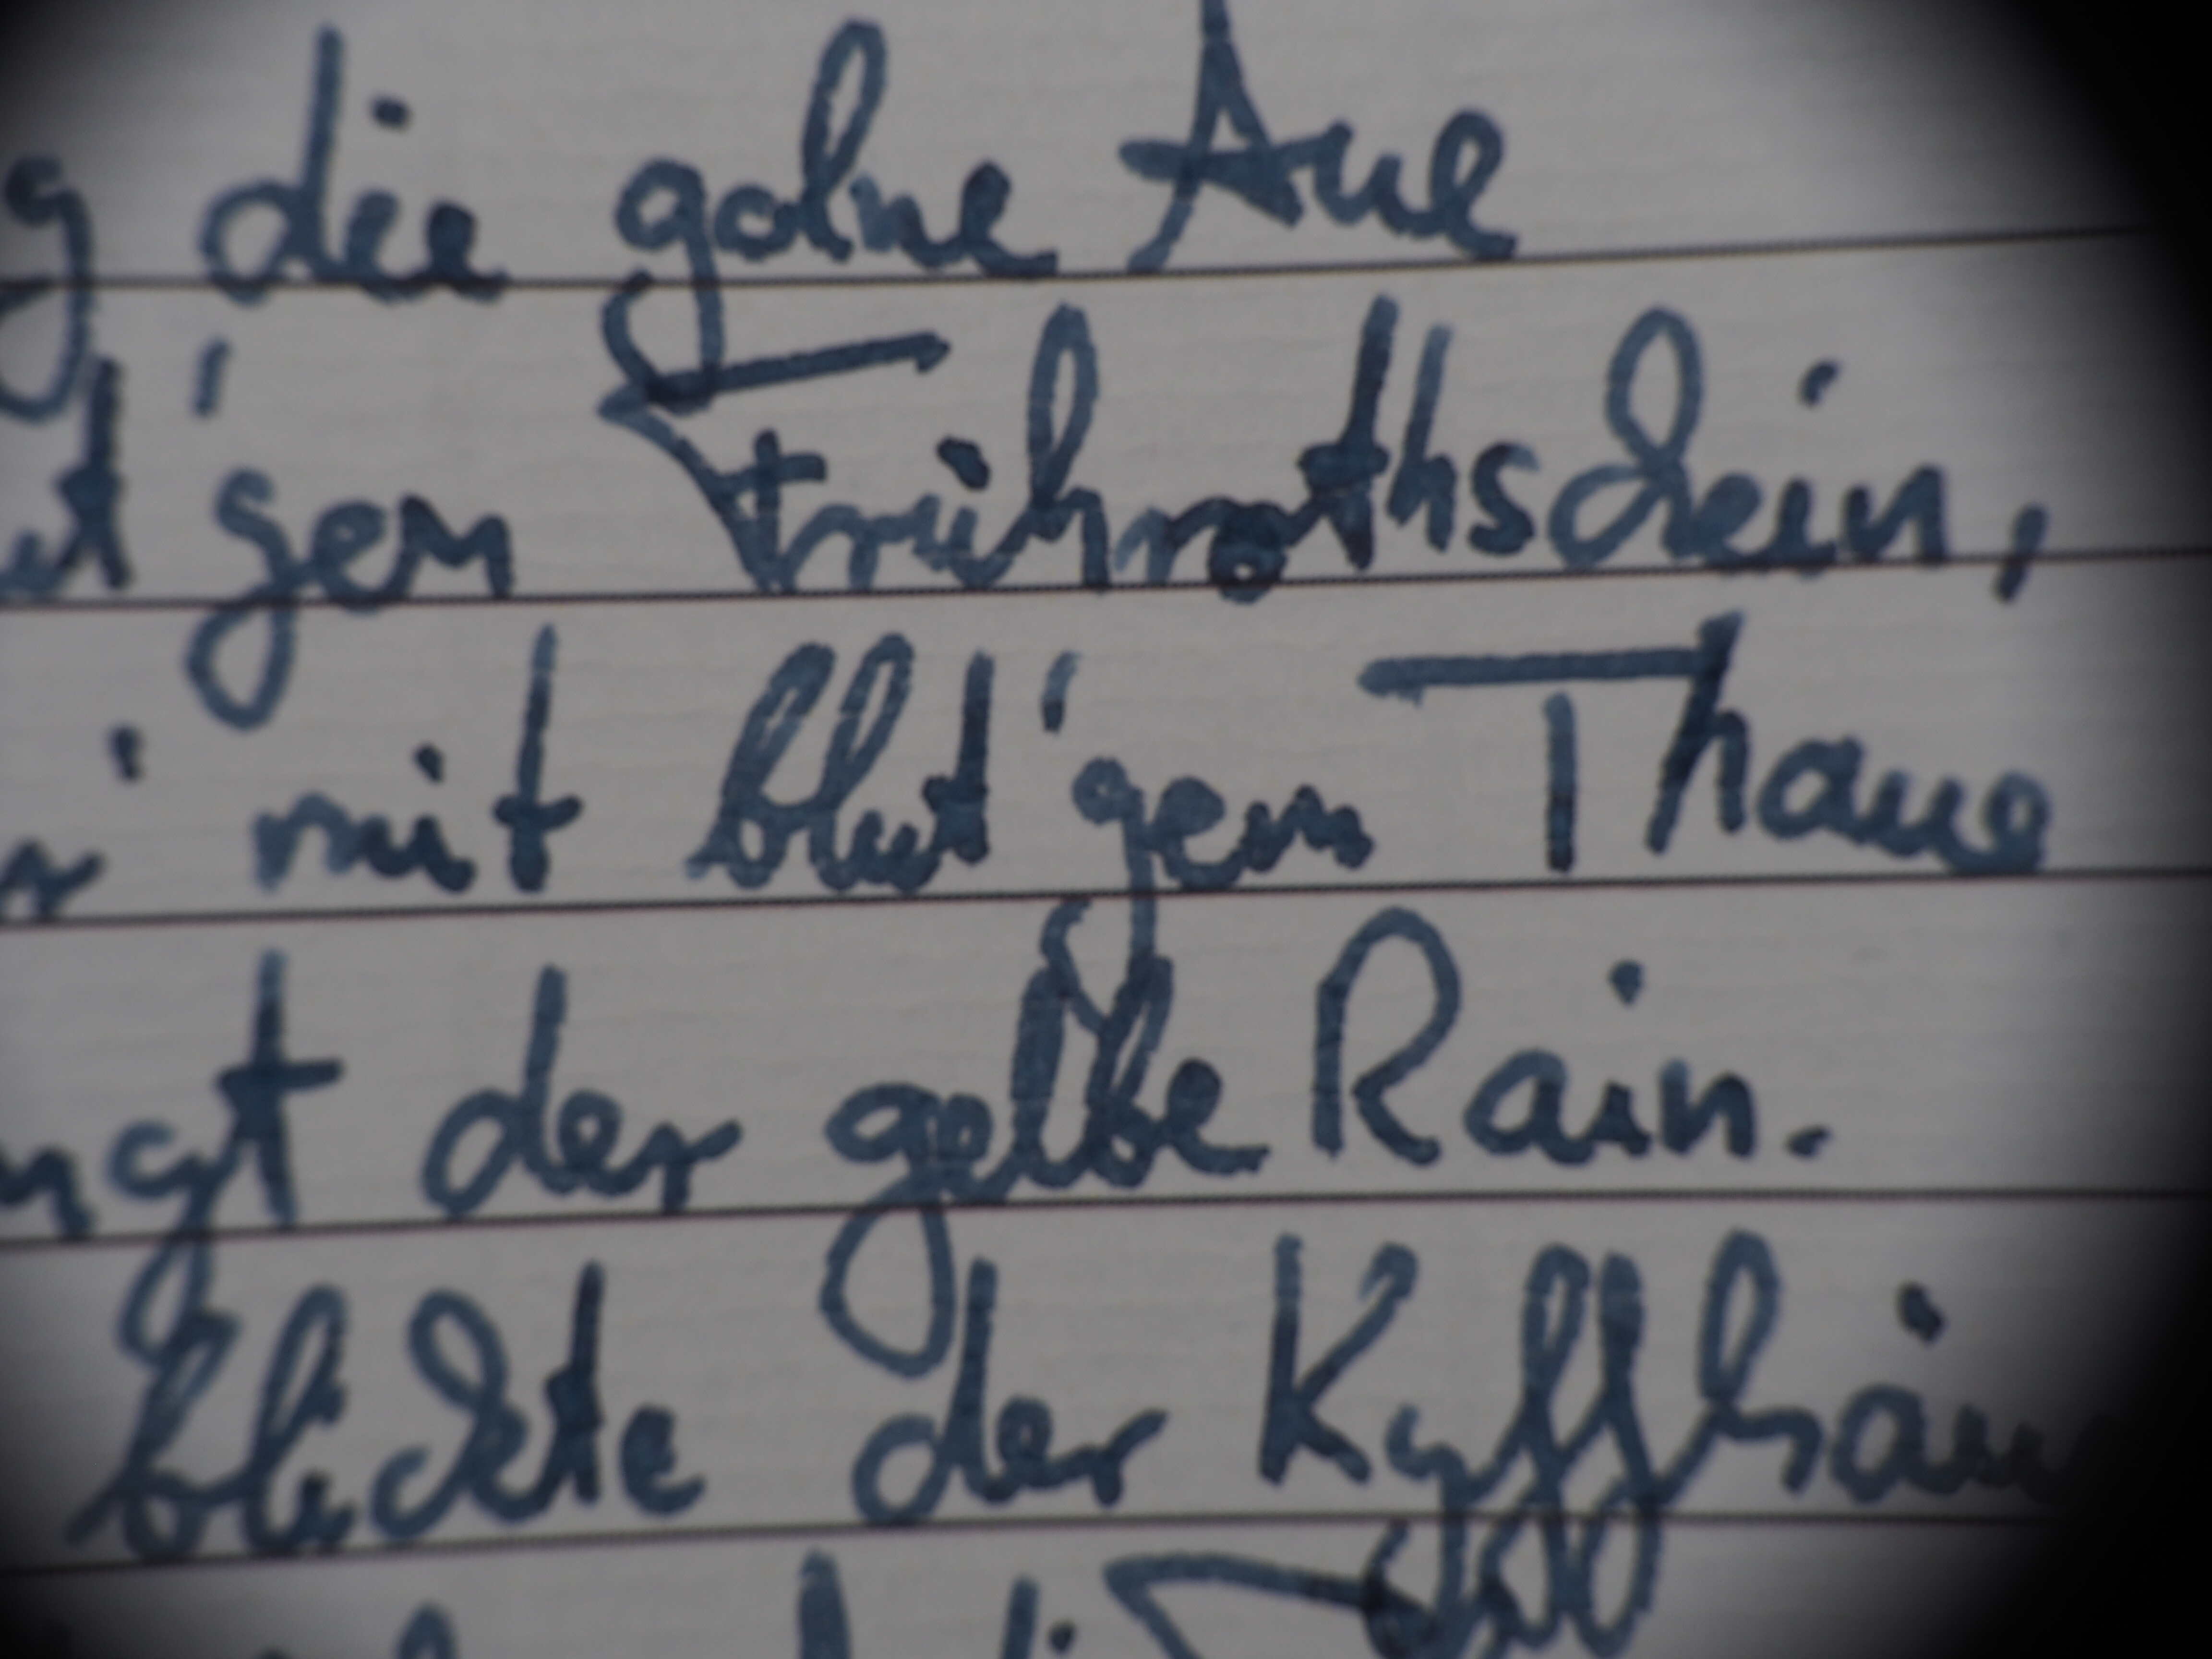 die golne Aue
gem Frührothschein,
mit blut'gem Thaue
der gelbe Rain.
blickte der